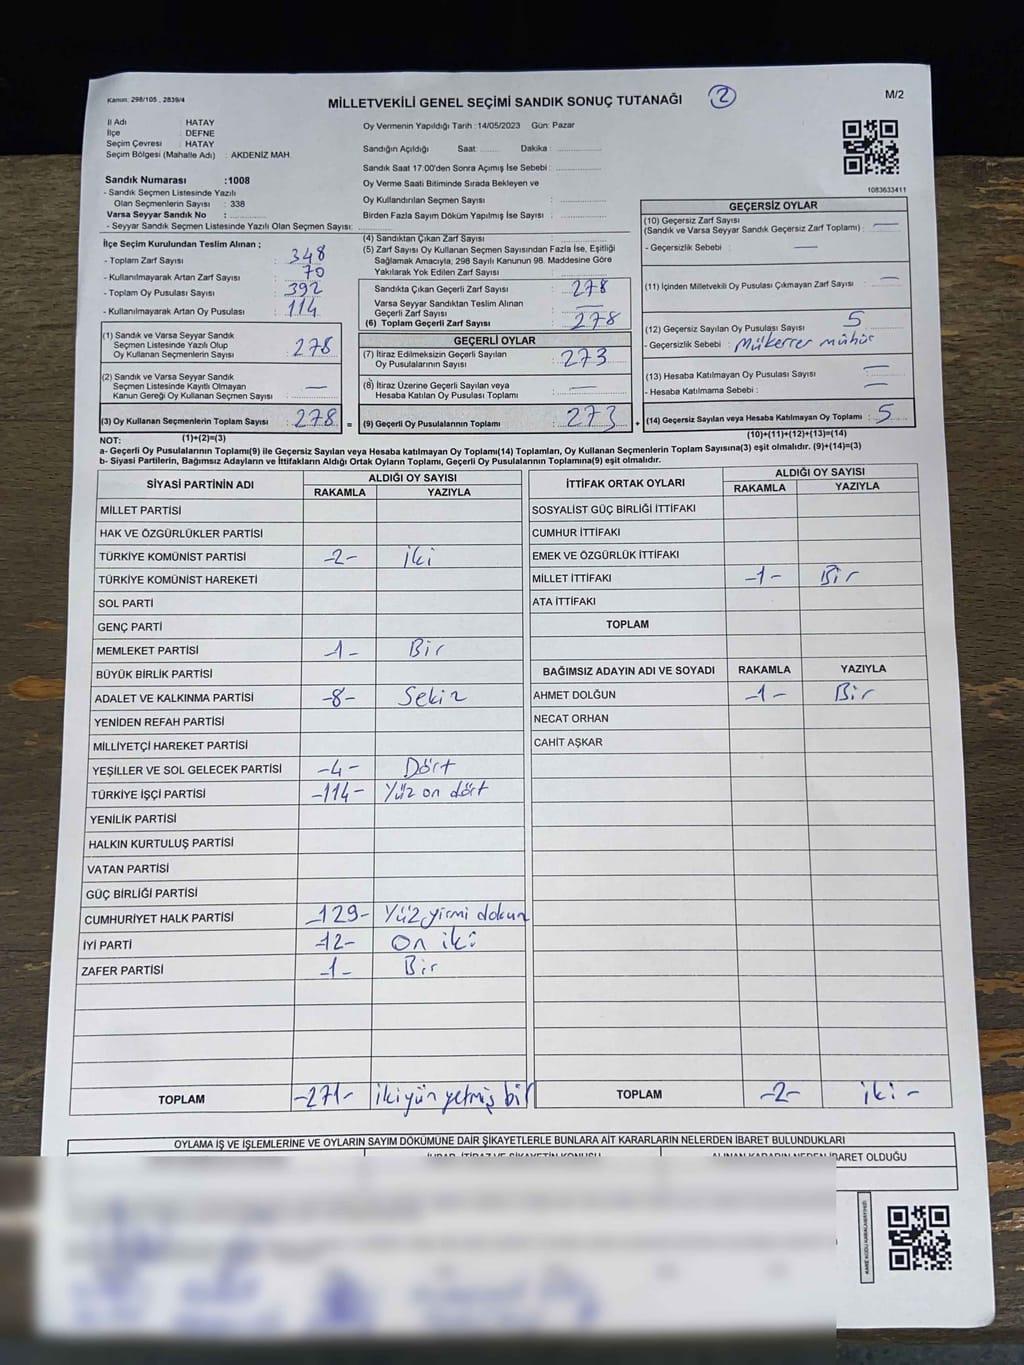 Kanun: 298/105 , 2839/4
MİLLETVEKİLİ GENEL SEÇİMİ SANDIK SONUÇ TUTANAĞI
2
M/2
İl Adı : HATAY
İlçe : DEFNE
Seçim Çevresi : HATAY
Seçim Bölgesi (Mahalle Adı) : AKDENİZ MAH.
Sandık Numarası :1008
- Sandık Seçmen Listesinde Yazılı
Olan Seçmenlerin Sayısı : 338
Varsa Seyyar Sandık No :
- Seyyar Sandık Seçmen Listesinde Yazılı Olan Seçmen Sayısı:
Oy Vermenin Yapıldığı Tarih : 14/05/2023 Gün: Pazar
Sandığın Açıldığı Saat: Dakika :
Sandık Saat 17.00'den Sonra Açımış İse Sebebi :
Oy Verme Saati Bitiminde Sırada Bekleyen ve
Oy Kullandırılan Seçmen Sayısı :
Birden Fazla Sayım Döküm Yapılmış İse Sayısı :
1083633411
İlçe Seçim Kurulundan Teslim Alınan ;
- Toplam Zarf Sayısı : 348
- Kullanılmayarak Artan Zarf Sayısı : 70
- Toplam Oy Pusulası Sayısı : 392
- Kullanılmayarak Artan Oy Pusulası : 114
(1) Sandık ve Varsa Seyyar Sandık
Seçmen Listesinde Yazılı Olup
Oy Kullanan Seçmenlerin Sayısı : 278
(2) Sandık ve Varsa Seyyar Sandık
Seçmen Listesinde Kayıtlı Olmayan
Kanun Gereği Oy Kullanan Seçmen Sayısı : —
(3) Oy Kullanan Seçmenlerin Toplam Sayısı : 278 =
(4) Sandıktan Çıkan Zarf Sayısı :
(5) Zarf Sayısı Oy Kullanan Seçmen Sayısından Fazla İse, Eşitliği
Sağlamak Amacıyla, 298 Sayılı Kanunun 98. Maddesine Göre
Yakılarak Yok Edilen Zarf Sayısı :
Sandıkta Çıkan Geçerli Zarf Sayısı : 278
Varsa Seyyar Sandıktan Teslim Alınan
Geçerli Zarf Sayısı : —
(6) Toplam Geçerli Zarf Sayısı : 278
GEÇERLİ OYLAR
(7) İtiraz Edilmeksizin Geçerli Sayılan
Oy Pusulalarının Sayısı : 273
(8) İtiraz Üzerine Geçerli Sayılan veya
Hesaba Katılan Oy Pusulası Toplamı : —
(9) Geçerli Oy Pusulalarının Toplamı : 273 +
GEÇERSİZ OYLAR
(10) Geçersiz Zarf Sayısı
(Sandık ve Varsa Seyyar Sandık Geçersiz Zarf Toplamı) : —
- Geçersizlik Sebebi : —
(11) İçinden Milletvekili Oy Pusulası Çıkmayan Zarf Sayısı : —
(12) Geçersiz Sayılan Oy Pusulası Sayısı : 5
- Geçersizlik Sebebi : Mükerrer mühür
(13) Hesaba Katılmayan Oy Pusulası Sayısı : —
- Hesaba Katılmama Sebebi : —
(14) Geçersiz Sayılan veya Hesaba Katılmayan Oy Toplamı : 5
NOT: (1)+(2)=(3)
(10)+(11)+(12)+(13)=(14)
a- Geçerli Oy Pusulalarının Toplamı(9) ile Geçersiz Sayılan veya Hesaba katılmayan Oy Toplamı(14) Toplamları, Oy Kullanan Seçmenlerin Toplam Sayısına(3) eşit olmalıdır. (9)+(14)=(3)
b- Siyasi Partilerin, Bağımsız Adayların ve İttifakların Aldığı Ortak Oyların Toplamı, Geçerli Oy Pusulalarının Toplamına(9) eşit olmalıdır.
SİYASİ PARTİNİN ADI ALDIĞI OY SAYISI
RAKAMLA YAZIYLA
MİLLET PARTİSİ
HAK VE ÖZGÜRLÜKLER PARTİSİ
TÜRKİYE KOMÜNİST PARTİSİ -2- iki
TÜRKİYE KOMÜNİST HAREKETİ
SOL PARTİ
GENÇ PARTİ
MEMLEKET PARTİSİ -1- Bir
BÜYÜK BİRLİK PARTİSİ
ADALET VE KALKINMA PARTİSİ -8- Sekiz
YENİDEN REFAH PARTİSİ
MİLLİYETÇİ HAREKET PARTİSİ
YEŞİLLER VE SOL GELECEK PARTİSİ -4- Dört
TÜRKİYE İŞÇİ PARTİSİ -114- Yüz on dört
YENİLİK PARTİSİ
HALKIN KURTULUŞ PARTİSİ
VATAN PARTİSİ
GÜÇ BİRLİĞİ PARTİSİ
CUMHURİYET HALK PARTİSİ -129- Yüz yirmi dokuz
İYİ PARTİ -12- On iki
ZAFER PARTİSİ -1- Bir
TOPLAM -271- ikiyüz yetmiş bir
İTTİFAK ORTAK OYLARI ALDIĞI OY SAYISI
RAKAMLA YAZIYLA
SOSYALİST GÜÇ BİRLİĞİ İTTİFAKI
CUMHUR İTTİFAKI
EMEK VE ÖZGÜRLÜK İTTİFAKI
MİLLET İTTİFAKI -1- Bir
ATA İTTİFAKI
TOPLAM
BAĞIMSIZ ADAYIN ADI VE SOYADI RAKAMLA YAZIYLA
AHMET DOLĞUN -1- Bir
NECAT ORHAN
CAHİT AŞKAR
TOPLAM -2- iki -
OYLAMA İŞ VE İŞLEMLERİNE VE OYLARIN SAYIM DÖKÜMÜNE DAİR ŞİKAYETLERLE BUNLARA AİT KARARLARIN NELERDEN İBARET BULUNDUKLARI